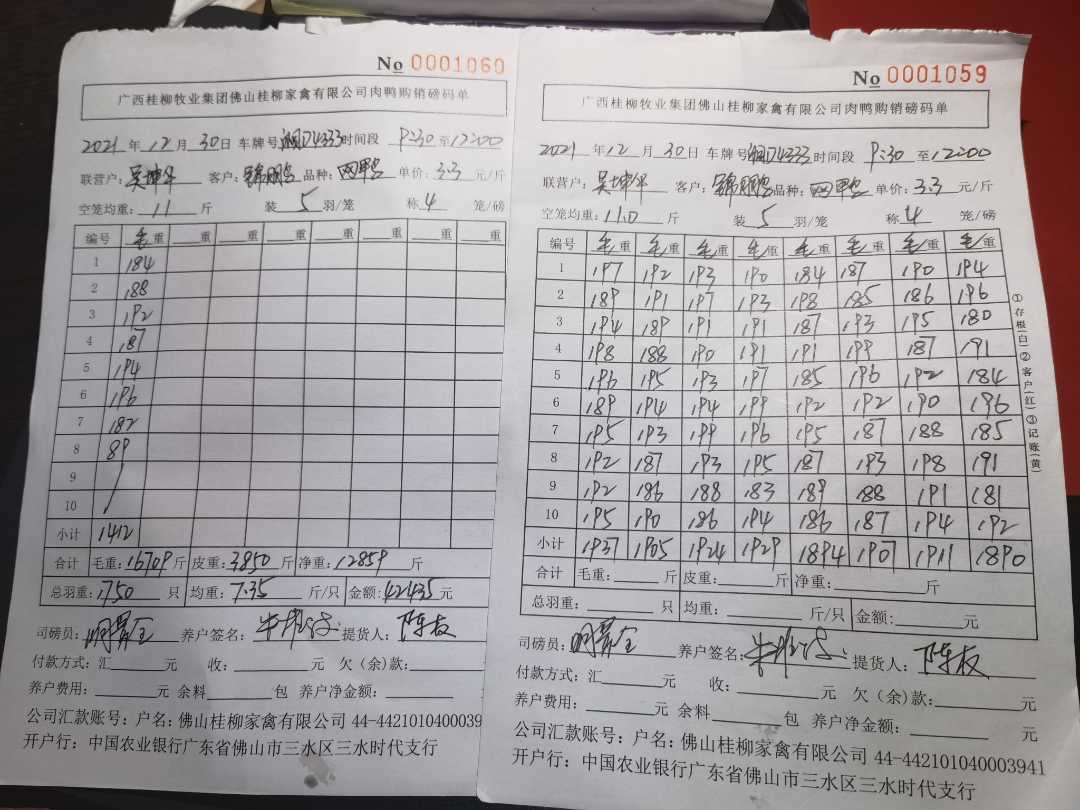 No 0001060
广西桂柳牧业集团佛山桂柳家禽有限公司肉鸭购销磅码单
2021 年 12 月 30 日 车牌号 湘D74333 时间段 9:30 至 12:00
联营户: 吴坤华 客户: 锦鹏 品种: 网鸭 单价: 3.3 元/斤
空笼均重: 11 斤 装 5 羽/笼 称 4 笼/磅
编号 毛重 重 重 重 重 重 重 重
1 184
2 188
3 192
4 187
5 194
6 196
7 182
8 89
9
10
小计 1412
合计 毛重: 16709 斤 皮重: 3850 斤 净重: 12859 斤
总羽重: 1750 只 均重: 7.35 斤/只 金额: 42435 元
司磅员: 养户签名: 提货人: 陈板
付款方式: 汇 元 收: 元 欠（余）款:
养户费用: 元 余料 包 养户净金额:
公司汇款账号: 户名: 佛山桂柳家禽有限公司 44-4421010400039
开户行: 中国农业银行广东省佛山市三水区三水时代支行
No 0001059
广西桂柳牧业集团佛山桂柳家禽有限公司肉鸭购销磅码单
2021 年 12 月 30 日 车牌号 湘D74333 时间段 9:30 至 12:00
联营户: 吴坤华 客户: 锦鹏 品种: 网鸭 单价: 3.3 元/斤
空笼均重: 11.0 斤 装 5 羽/笼 称 4 笼/磅
编号 毛重 毛重 毛重 毛重 毛重 毛重 毛重 毛重
1 197 192 193 190 184 187 190 194
2 189 191 197 193 198 185 186 196
3 194 189 191 191 187 193 195 180
4 198 188 190 191 191 199 187 191
5 196 195 193 197 185 196 192 184
6 189 194 194 199 192 192 190 196
7 195 193 199 196 195 187 188 185
8 192 187 193 195 187 193 198 191
9 192 186 188 183 189 188 191 181
10 195 190 186 194 186 187 194 192
小计 1937 1905 1924 1929 1894 1907 1911 1890
合计 毛重: 斤 皮重: 斤 净重: 斤
总羽重: 只 均重: 斤/只 金额: 元
司磅员: 养户签名: 提货人: 陈板
付款方式: 汇 元 收: 元 欠（余）款: 元
养户费用: 元 余料 包 养户净金额: 元
公司汇款账号: 户名: 佛山桂柳家禽有限公司 44-442101040003941
开户行: 中国农业银行广东省佛山市三水区三水时代支行
①存根(白)②客户(红)③记账(黄)